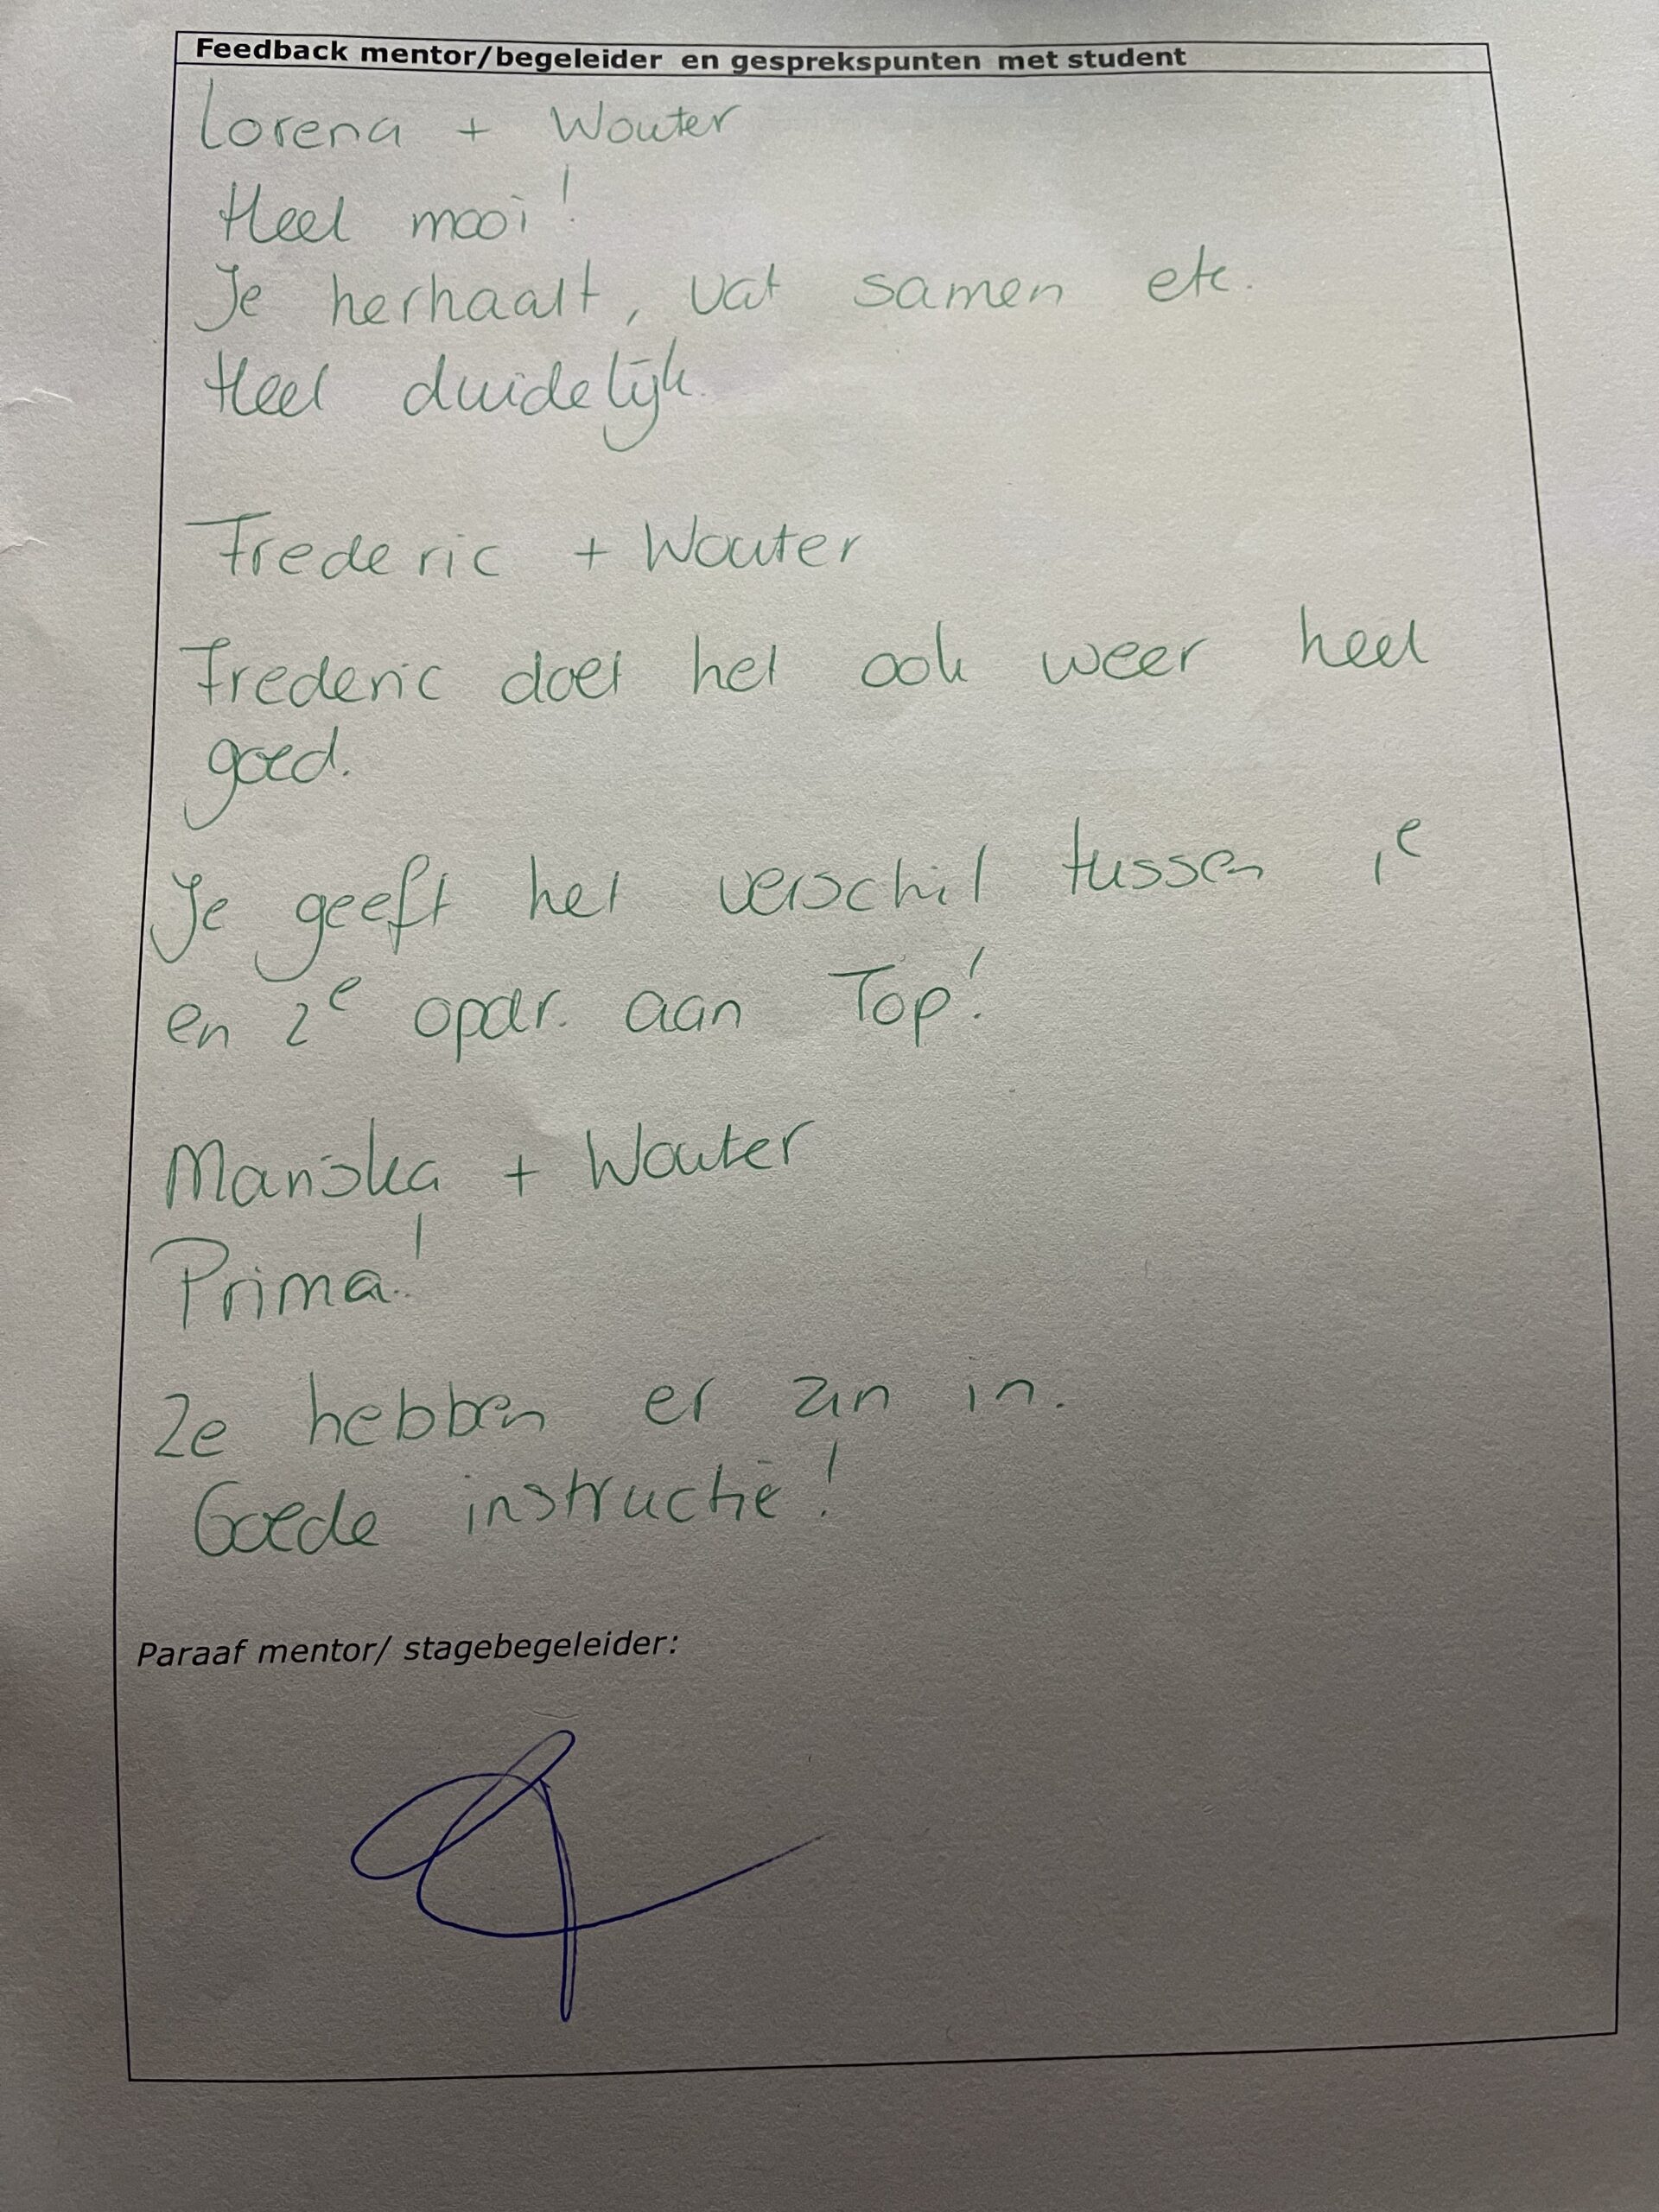 Feedback mentor/begeleider en gesprekspunten met student
Lorena + Wouter
Heel mooi!
Je herhaalt, vat samen etc.
Heel duidelijk.
Frederic + Wouter
Frederic doet het ook weer heel
goed.
Je geeft het verschil tussen 1e
en 2e opdr. aan Top!
Mariska + Wouter
Prima!
Ze hebben er zin in.
Goede instructie!
Paraaf mentor/ stagebegeleider: